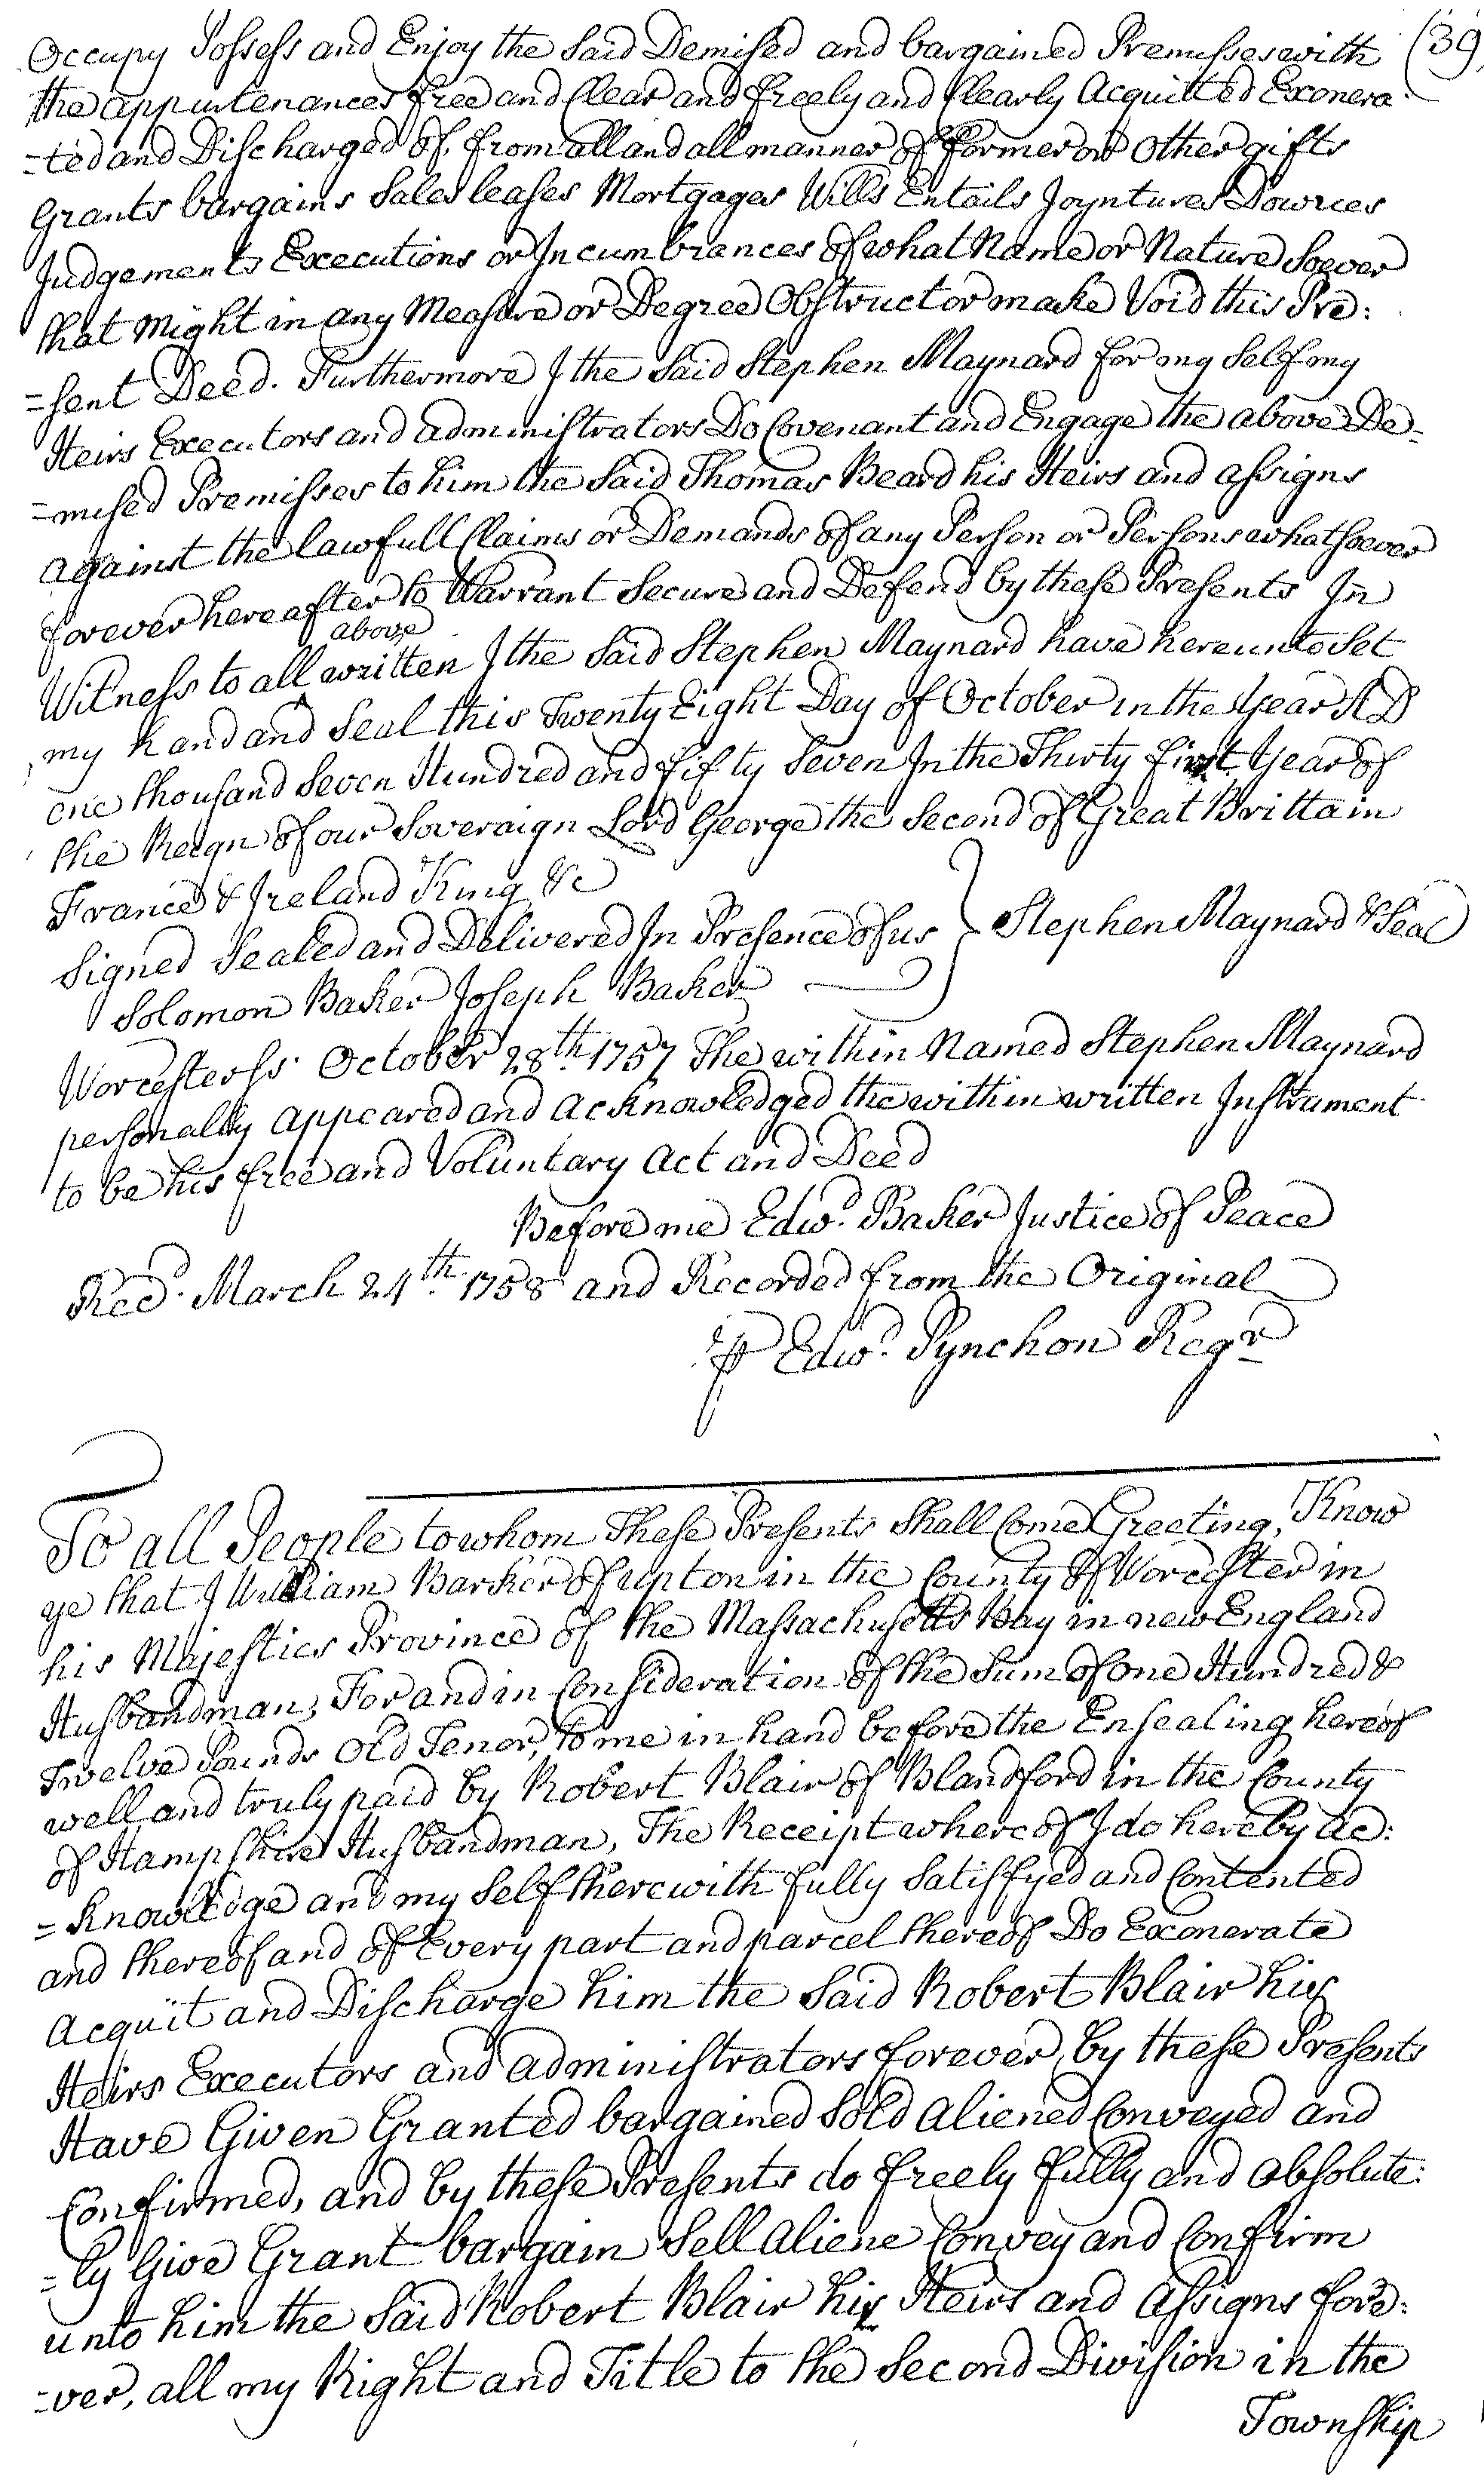 (39
Occupy Possess and Enjoy the Said Demised and bargained Premisses with
the appurtenances free and Clear and freely and Clearly Acquitted Exonera-
-ted and Discharged of, from all and all manner of former or other gifts
Grants bargains Sales leases Mortgages Wills Entails Joyntures Dowries
Judgements Executions or Incumbrances of what Name or Nature Soever
that Might in any Measure or Degree Obstruct or make Void this Pre:
=sent Deed. Furthermore I the Said Stephen Maynard for my Self my
Heirs Executors and administrators Do Covenant and Engage the above De-
=mised Premisses to him the Said Thomas Beard his Heirs and assigns
against the lawfull Claims or Demands of any Person or Persons whatsoever
forever hereafter to Warrant Secure and Defend by these Presents In
Witness to all above written I the Said Stephen Maynard have hereunto Set
my hand and Seal this Twenty Eight Day of October in the Year AD
one thousand Seven Hundred and fifty Seven In the Thirty first Year of
the Reign of our Soveraign Lord George the Second of Great Brittain
France & Ireland King &c
Signed Sealed and Delivered In Presence of us } Stephen Maynard & Seal
Solomon Baker Joseph Baker
Worcester Ss. October 28th. 1757 The within Named Stephen Maynard
personally appeared and acknowledged the within written Instrument
to be his free and Voluntary Act and Deed
Before me Edwd. Baker Justice of Peace
Recd. March 24th. 1758 and Recorded from the Original
⅌ Edwd. Pynchon Regr
To all People to whom These Presents Shall Come Greeting, Know
ye that I William Barker of upton in the County of Worcester in
his Majesties Province of the Massachusetts Bay in new England
Husbandman, For and in Consideration of the Sum of one Hundred &
Twelve Pounds Old Tenor, to me in hand before the Ensealing hereof
well and truly paid by Robert Blair of Blandford in the County
of Hampshire Husbandman, The Receipt whereof I do hereby ac:
=knowledge and my Self therewith fully Satisfyed and Contented
and thereof and of Every part and parcel thereof Do Exonerate
Acquit and Discharge him the Said Robert Blair his
Heirs Executors and administrators forever, by these Presents
Have Given Granted bargained Sold aliened Conveyed and
Confirmed, and by these Presents do freely fully and absolute:
=ly Give Grant bargain Sell aliene Convey and Confirm
unto him the Said Robert Blair his Heirs and Assigns fore:
=ver, all my Right and Title to the Second Division in the
Township